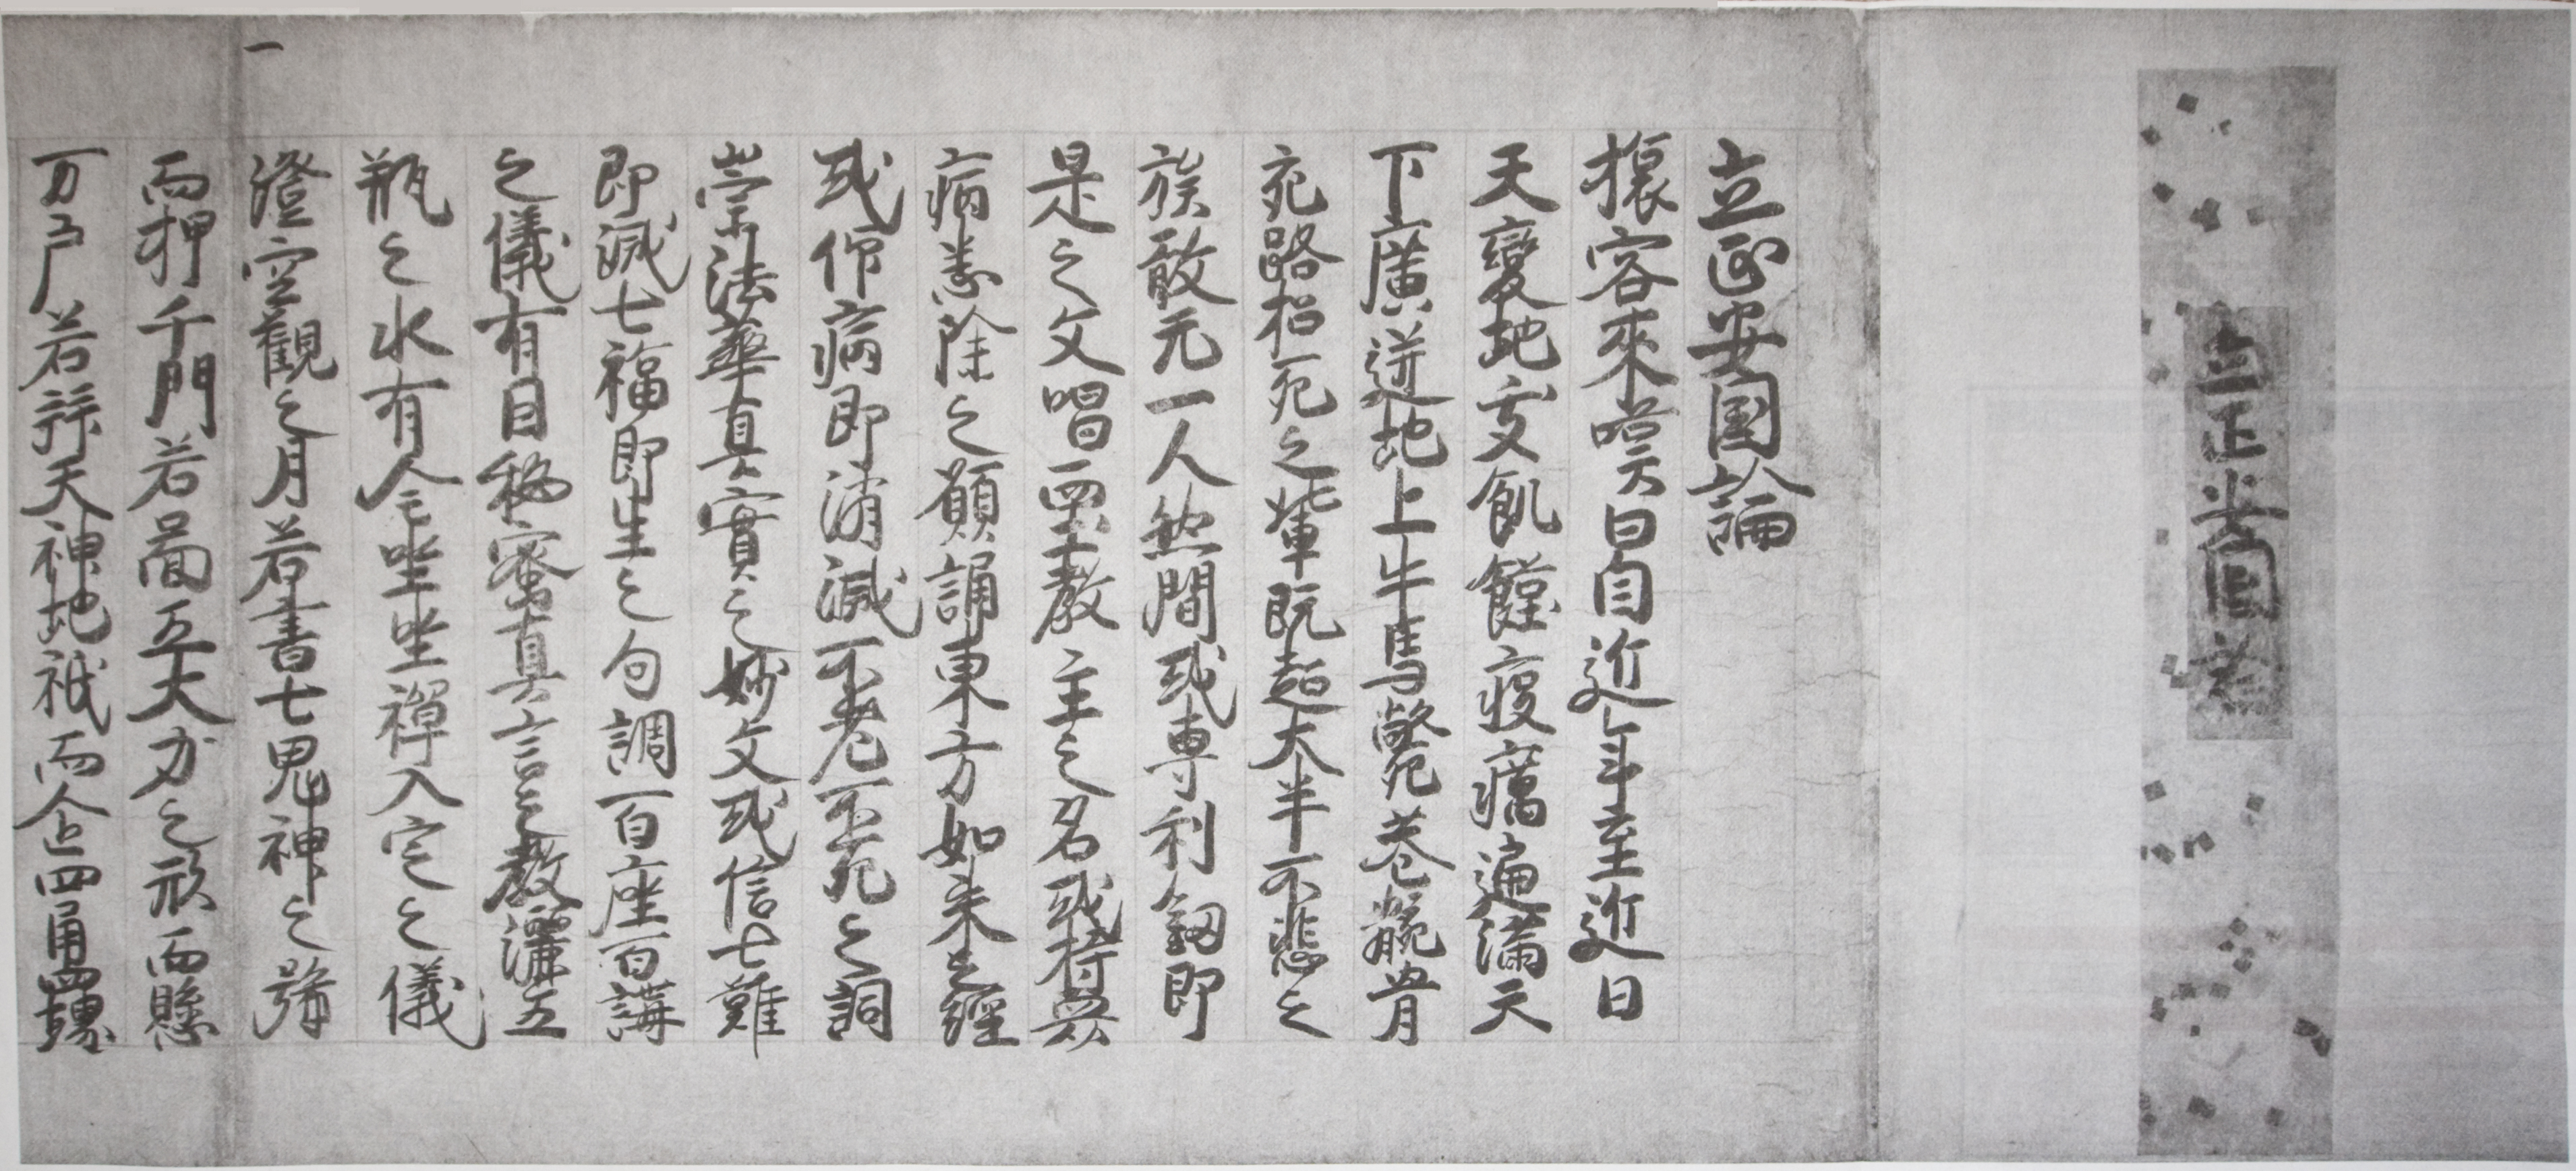 立正安国論
立正安国論
旅客來嘆曰自近年至近日
天變地夭飢饉疫癘遍滿天
下廣迸地上牛馬斃巷骸骨
充路招死之輩既超大半不悲之
族敢无一人然間或専利釼即
是之文唱西土教主之名或持衆
病悉除之願誦東方如来之經
或仰病即消滅不老不死之詞
崇法華真實之妙文或信七難
即滅七福即生之句調百座百講
之儀有因秘密真言之教灑五
瓶之水有全坐禪入定之儀
澄空觀之月若書七鬼神之號
而押千門若圖五大力之形而懸
万戸若拜天神地祇而企四角四堺